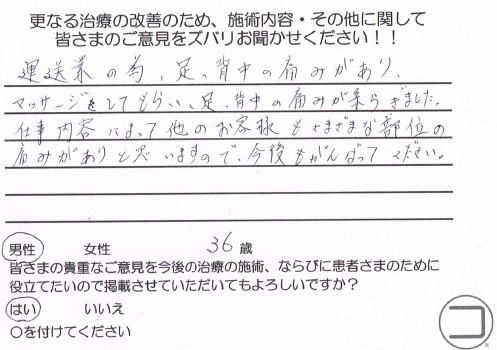 更なる治療の改善のため、施術内容・その他に関して
皆さまのご意見をズバリお聞かせください！！
運送業の為、足、背中の痛みがあり、
マッサージをしてもらい、足、背中の痛みが柔らぎました。
仕事内容によって他のお客様もさまざまな部位の
痛みがありと思いますので、今後もがんばってください。
男性 女性 36歳
皆さまの貴重なご意見を今後の治療の施術、ならびに患者さまのために
役立てたいので掲載させていただいてもよろしいですか？
はい いいえ
○を付けてください
コ